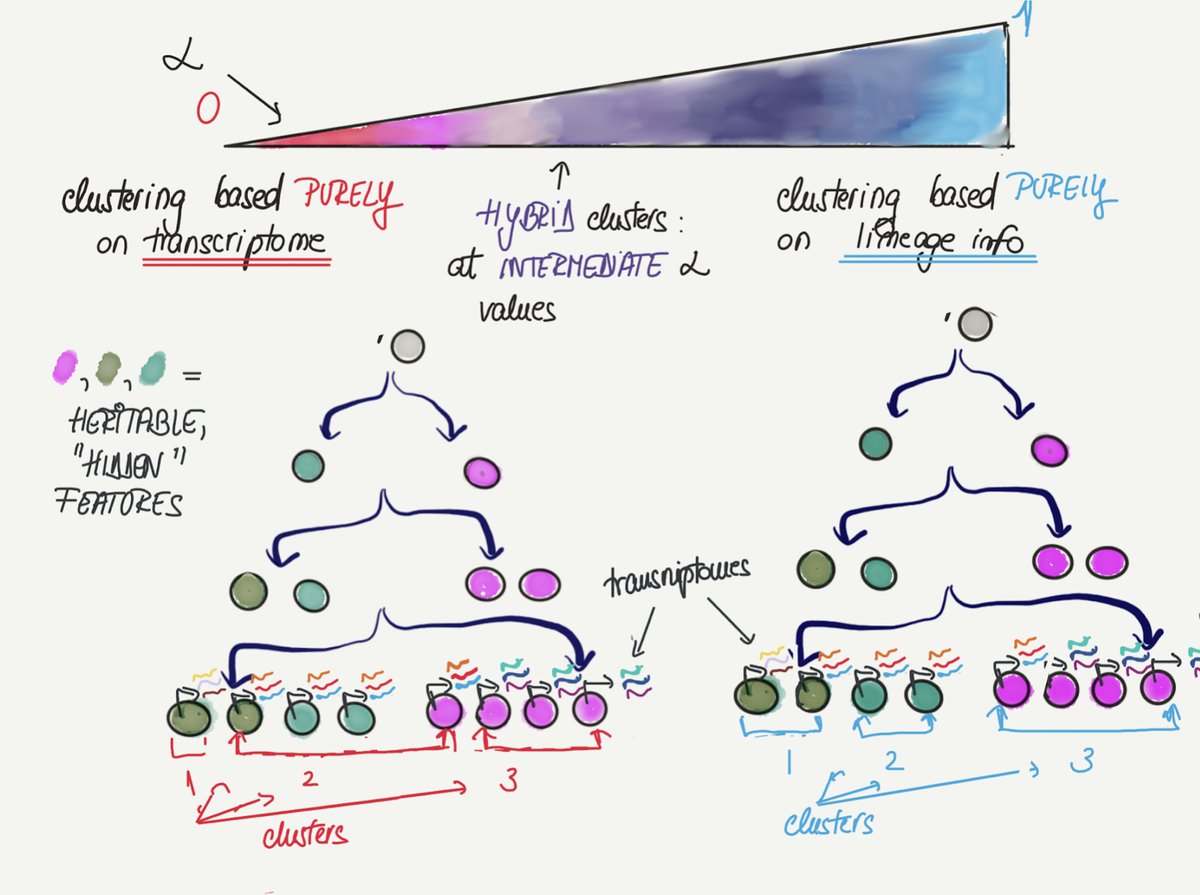 α
0
1
clustering based PURELY
on transcriptome
HYBRID clusters:
at INTERMEDIATE α
values
clustering based PURELY
on lineage info
, , =
HERITABLE,
"HIDDEN"
FEATURES
transcriptomes
1 2 3
clusters
1 2 3
clusters